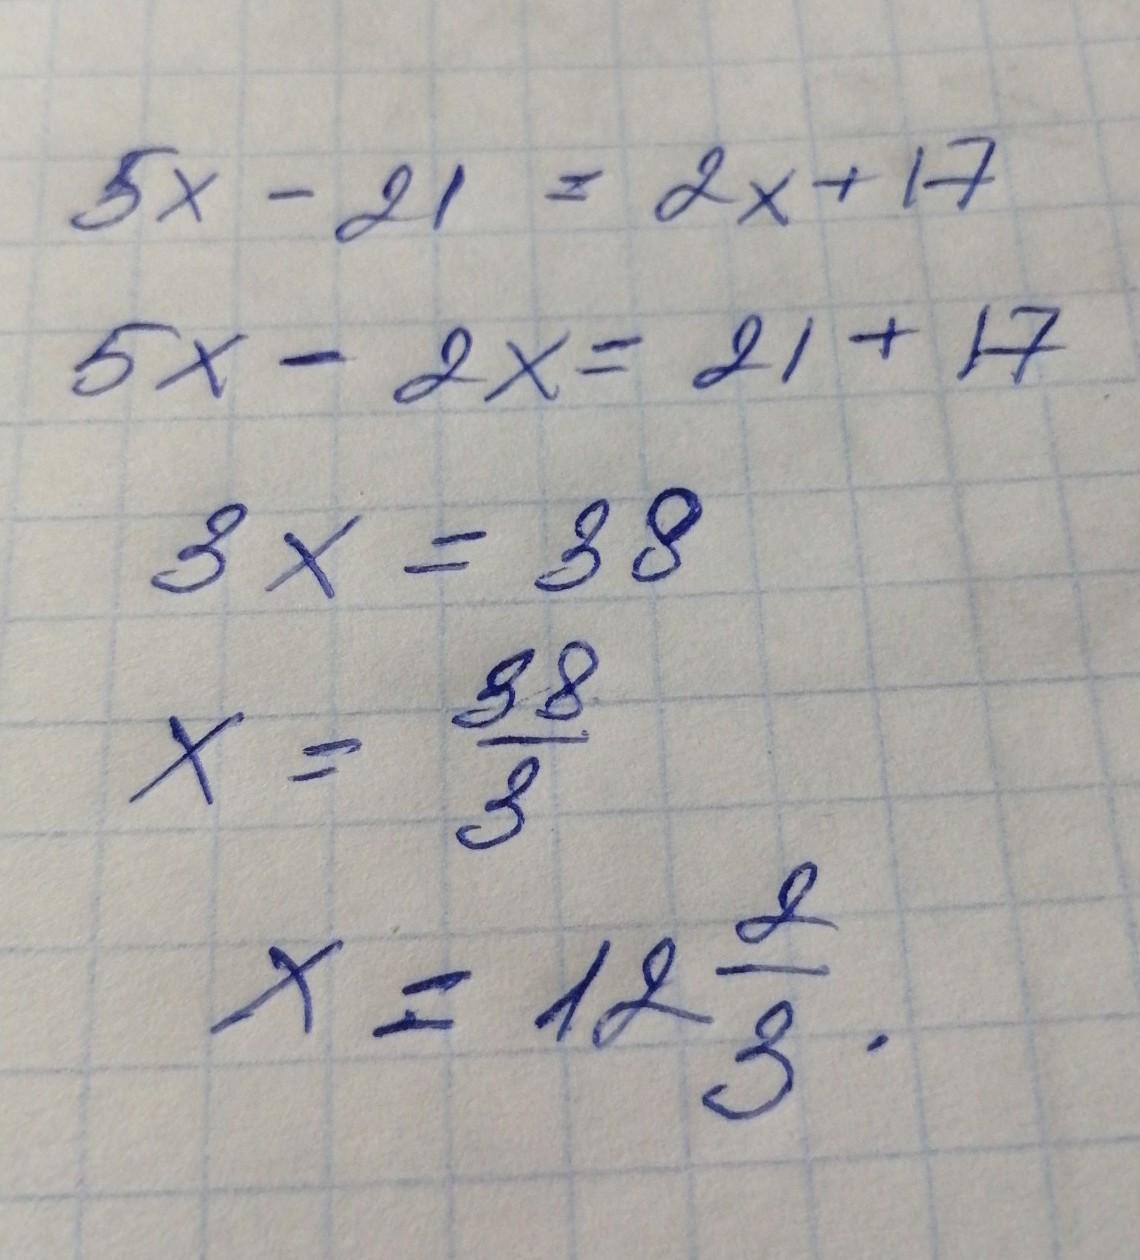 5x - 21 = 2x + 17
5x - 2x = 21 + 17
3x = 38
x = 38/3
x = 12 2/3.